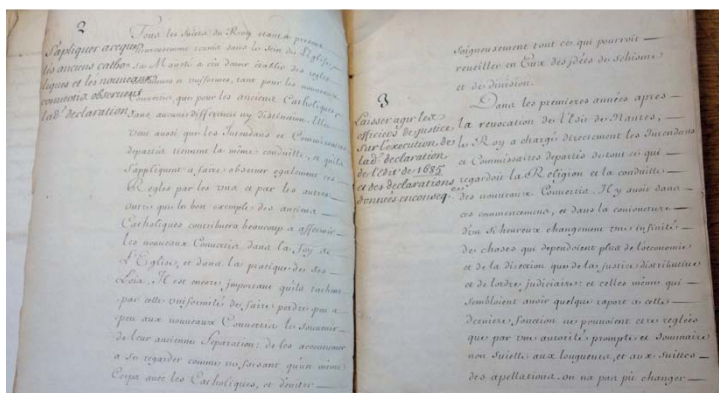 2
S'apliquer a ceque
les anciens catho-
liques et les nouveaux
convertis observent
lad.e declaration
Tous les Sujets du Roy etant a present
heureusement reunis dans le sein de l'Eglise
Sa Majesté a cru devoir établir des regles
communes et uniformes, tant pour les nouveaux
Convertis, que pour les anciens Catholiques
Sans aucune difference ny distinction. Elle
veut aussi que les Intendans et Commissaires
departis tiennent la même conduitte, et quils
s'appliquent a faire observer egalement ces
Regles par les uns et par les autres,
outre que le bon exemple des anciens
Catholiques contribuera beaucoup a affermir
les nouveaux Convertis dans la foy de
L'Eglise, et dans la pratique des ses
Loix. Il est encore important quils tachent
par cette uniformité de faire perdre peu a
peu aux nouveaux Convertis le souvenir
de leur ancienne Separation; de les accoutumer
a se regarder comme ne faisant qu'un même
Corps avec les Catholiques, et d'éviter
soigneusement tout ce qui pourroit
reveiller en Eux des idées de schisme
et de division.
3
Laisser agir les
officiers de justice
sur l'execution de
lad.e declaration
de l'Edit de 1685
et des declarations
données en conseq.ce
Dans les premieres années apres
la revocation de l'Edit de Nantes,
le Roy a chargé directement les Intendans
et Commissaires departis de tout ce qui
regardoit la Religion et la conduitte
des nouveaux Convertis. Il y avoit dans
ces commencemens, et dans la conjoncture
d'un si heureux changement une infinité
de choses qui dependoient plus de l'oeconomie
et de la direction que de la justice distributive
et de l'ordre judiciaire; et celles mêmes qui
sembloient avoir quelque raport a cette
derniere fonction ne pouvoient etre reglées
que par une autorité prompte et Sommaire
non Sujette aux longueurs, et aux Suittes
des apellations. on n'a pas pû changer